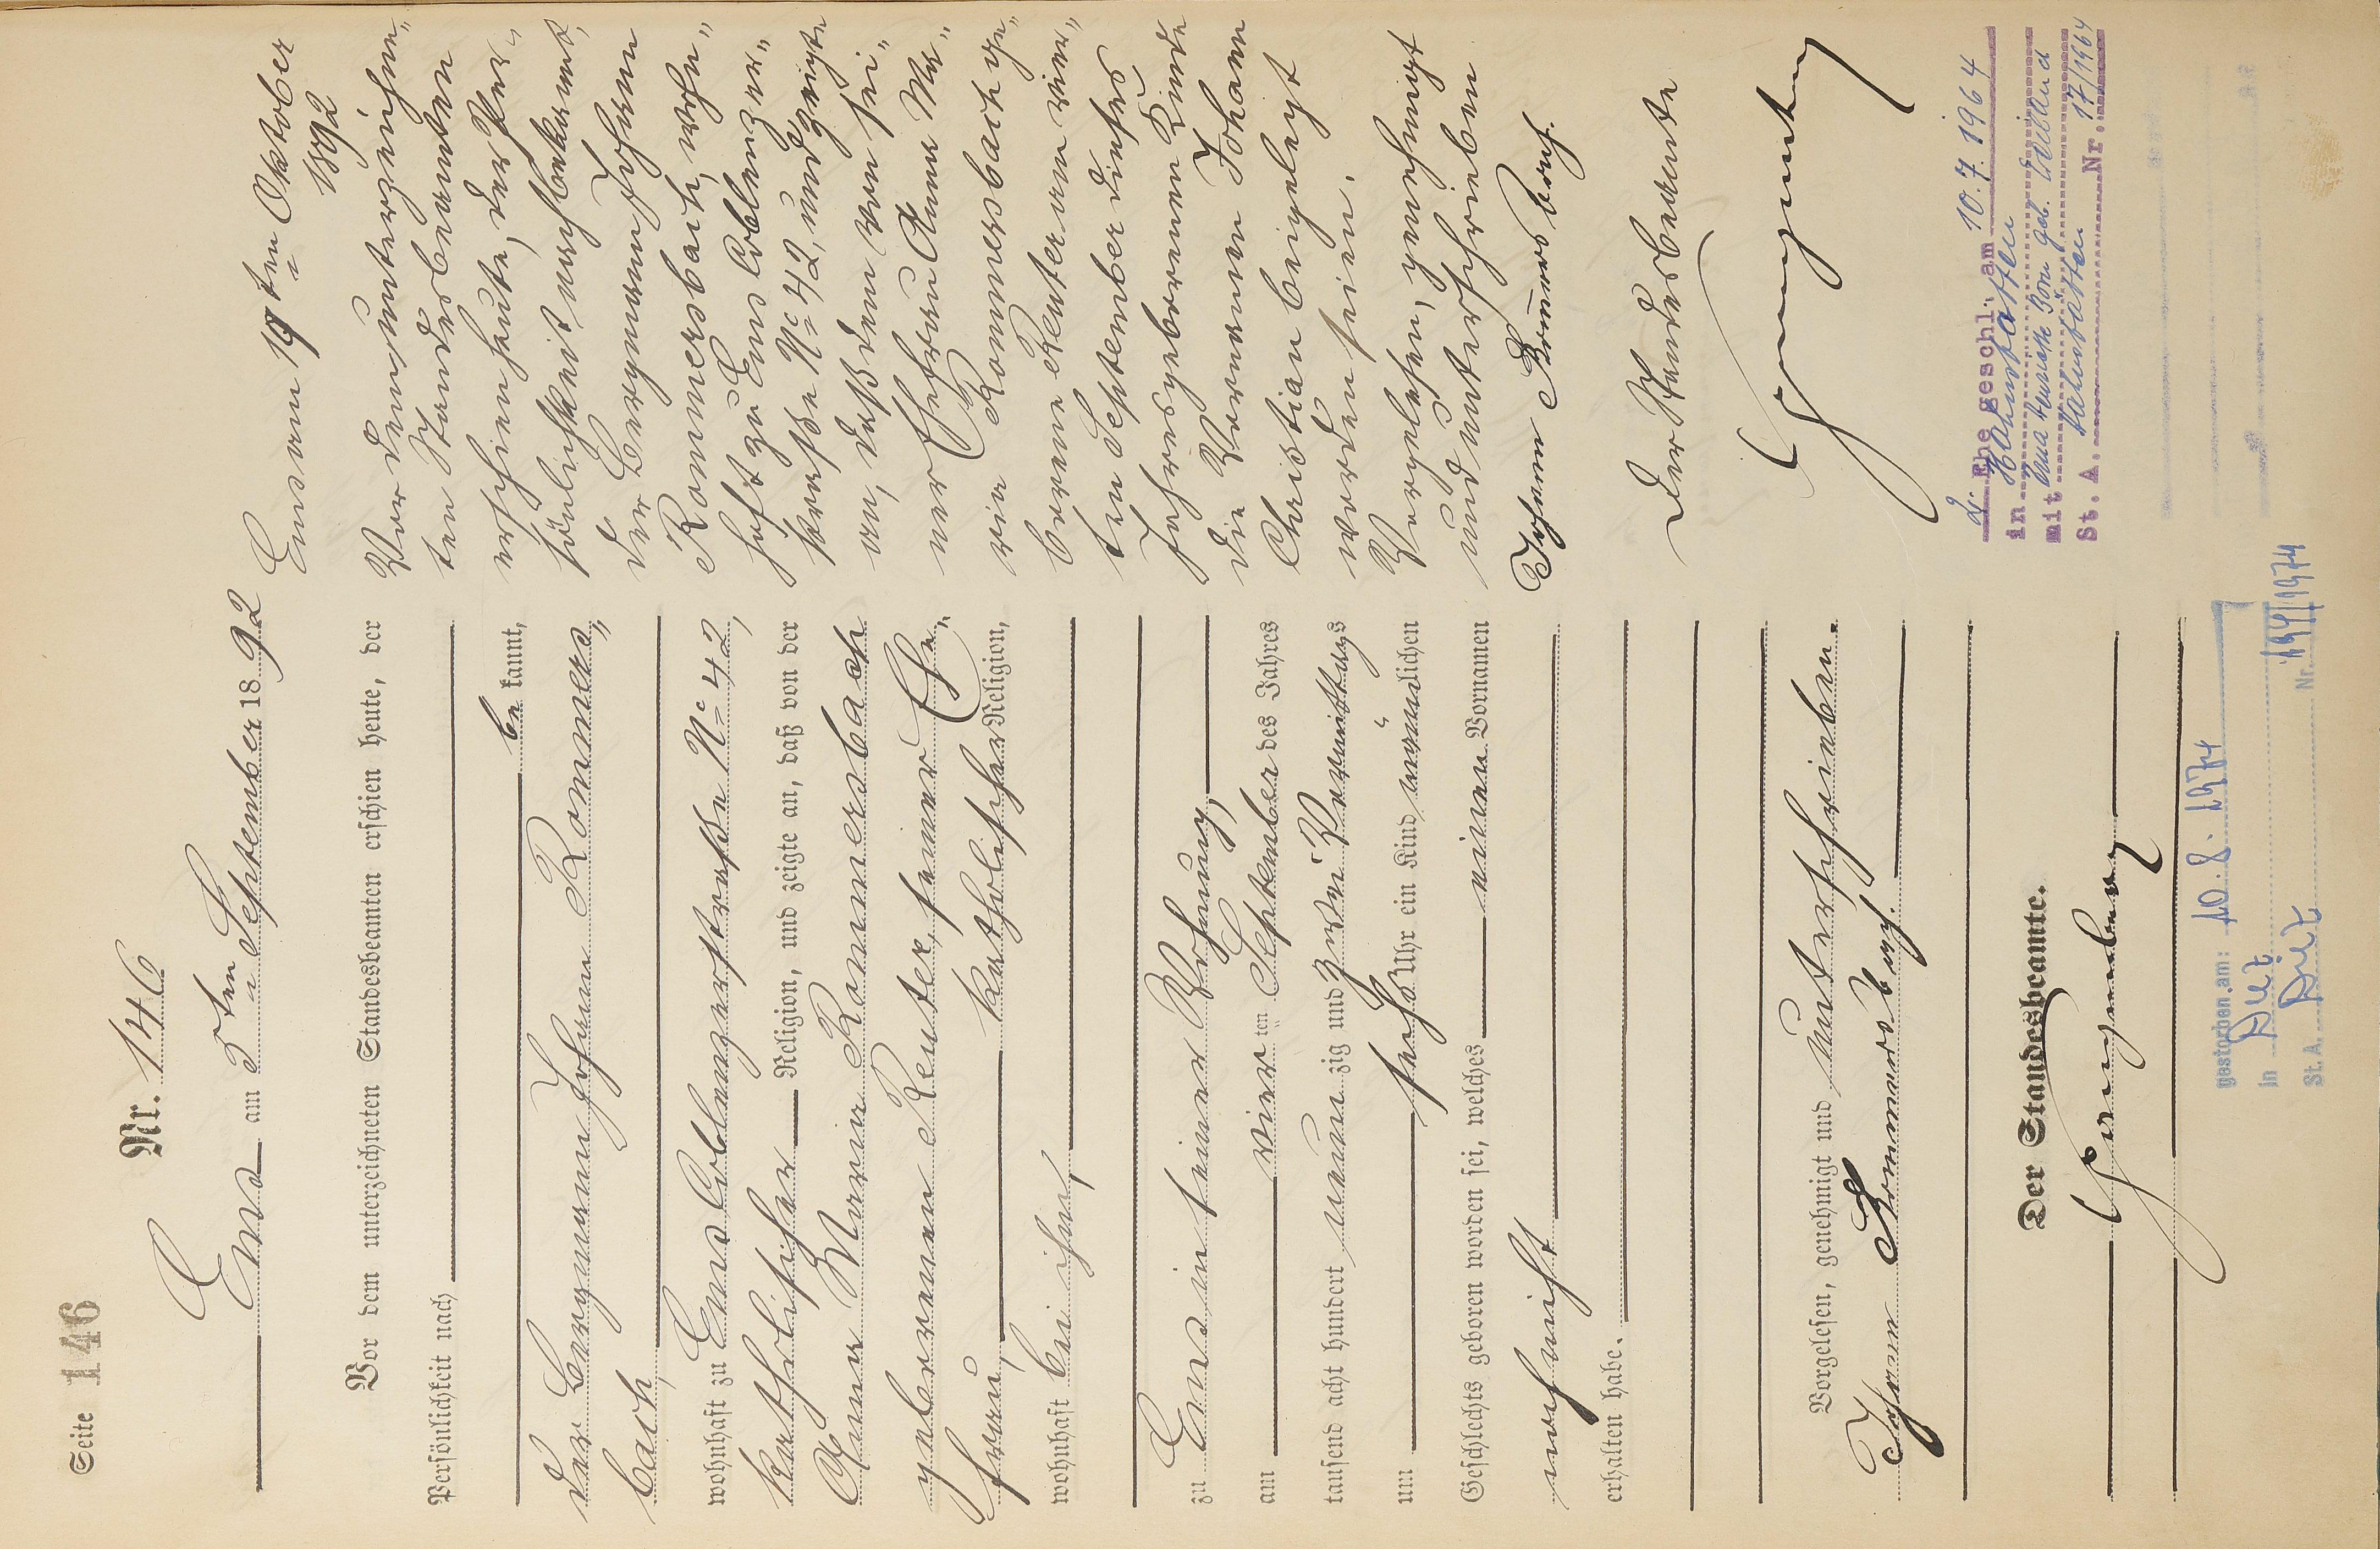 Seite 146
Nr. 146
Ems am 5ten September 1892
Vor dem unterzeichneten Standesbeamten erschien heute, der
Persönlichkeit nach
be kannt,
der Bergmann Johann Rommers„
bach,
wohnhaft zu Ems Coblenzerstraße No 42,
katholischer Religion, und zeigte an, daß von der
Anna Maria Rommersbach
geborenen Reuter, seiner Ehe„
frau, katholischer Religion,
wohnhaft bei ihm,
zu Ems in seiner Wohnung,
am vierten September des Jahres
tausend acht hundert neun zig und zwei Vormittags
um sechs Uhr ein Kind männlichen
Geschlechts geboren worden sei, welches einen Vornamen
noch nicht
erhalten habe.
Vorgelesen, genehmigt und unterschrieben.
Johann Rommersbach.
Der Standesbeamte.
gestorben am: 10.8.1974
in Diez
St. A. Diez Nr. 194/1974
Ems am 19ten Oktober
1892
Vor dem unterzeichne„
ten Standesbeamten
erschien heute, der Per„
sönlichkeit nach bekannt,
der Bergmann Johann
Rommersbach, wohn„
haft zu Ems Coblenzer„
straße No 42, und zeigte
an, daß dem von sei„
ner Ehefrau Anna Ma„
ria Rommersbach ge„
borene Reuter am vier„
ten September dieses
Jahres geborenen Kinde
die Vornamen Johann
Christian beigelegt
worden seien.
Vorgelesen, genehmigt
und unterschrieben
Johann Rommersbach.
Der Standesbeamte
2. Ehe geschl. am 10.7.1964
in Hahnstätten
mit geb.
St. A. Hahnstätten Nr. 17/1964